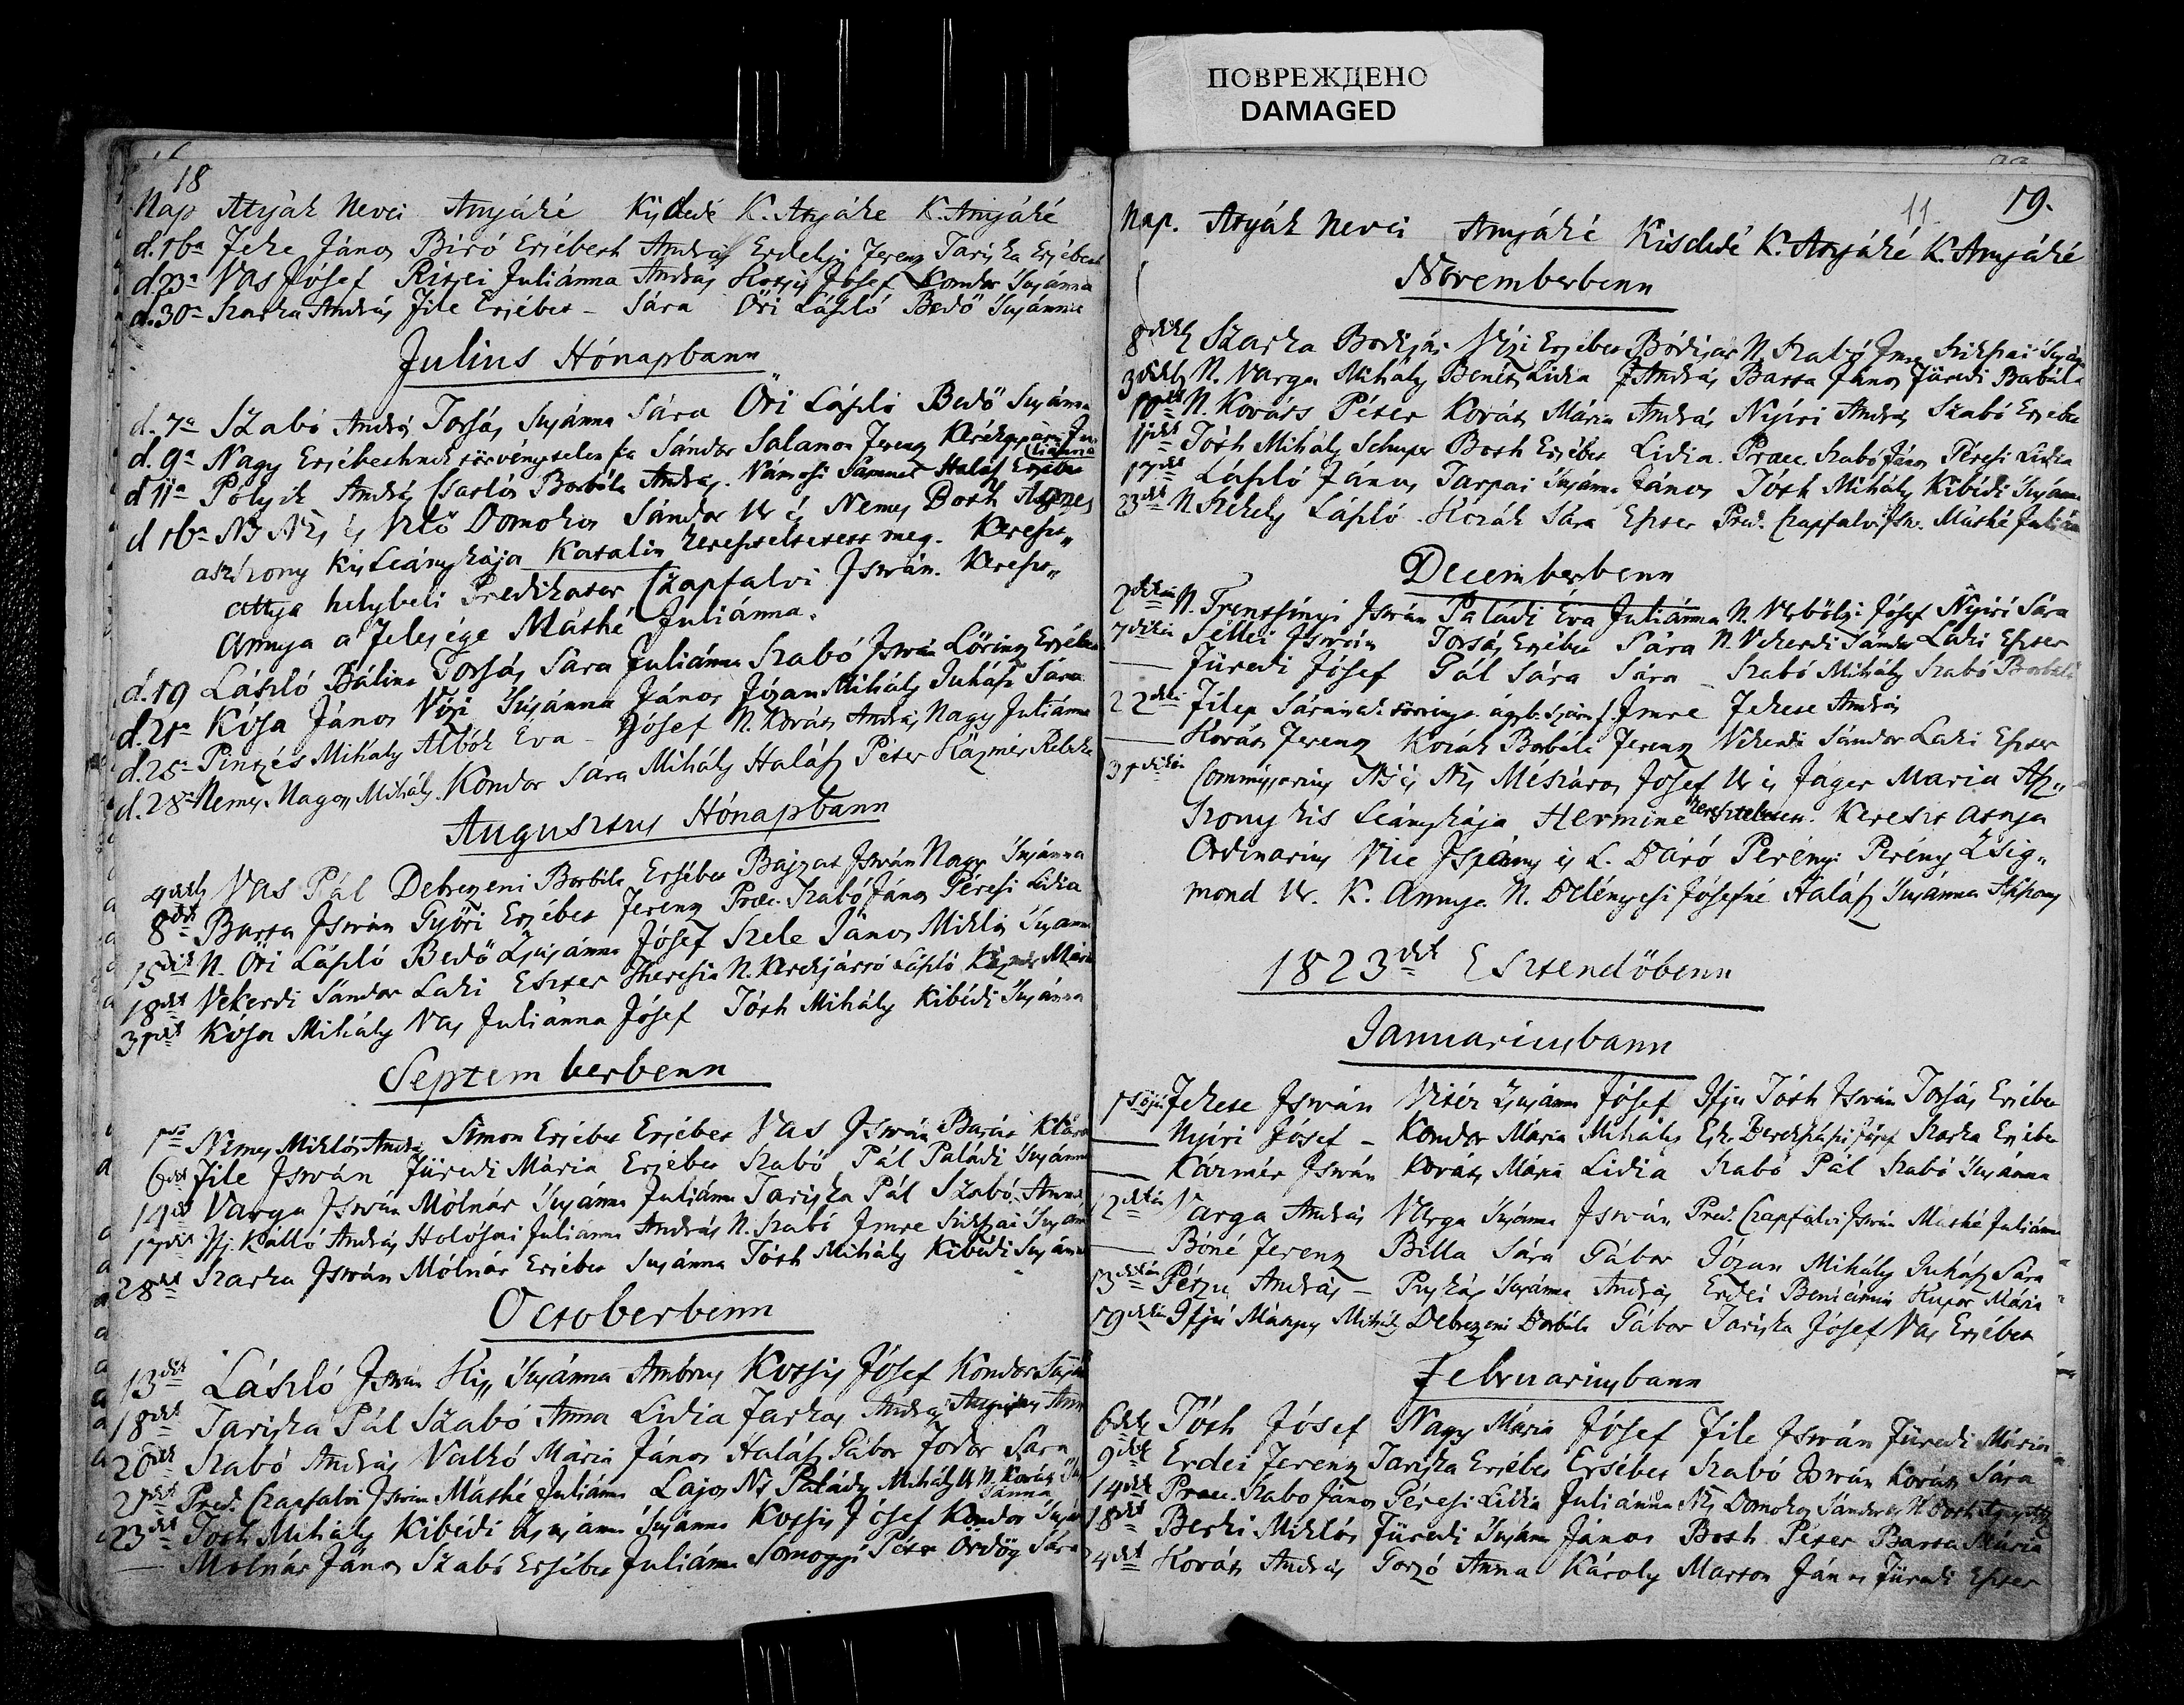 ПОВРЕЖДЕНО
DAMAGED
18
Nap Attyák Nevei Annyáké Kisdedé K. Attyáké K. Annyáké
d. 16a Feke János Biró Ersébeth András Erdelyi Ferenz Tariska Ersébeth
d. 23a Vas Josef Ritzei Juliánna András Kossis Jósef Kondor Susánna
d. 30a Szarka András File Ersébet – Sára Öri László Bedő Susánna
Julius Hónapbann
d. 7a Szabó András Torsás Susánna Sára Öri László Bedő Susánna
d. 9a Nagy Ersébethnek törvénytelen fia Sándor Salamon Ferenz
d 11a Polyik András Borbála András Vámosi Sámuel Halász Ersébet
d 16a Ns Ns és Vitéz Domokos Sándor Ur és Nemes Doth Agnes
aszszony kis Leánykája Katalin kereszteltetett meg. Kereszt„
attya helybeli Predikator Czapfalvi Istwán. Kereszt„
Annya a Felesége Máthé Juliánna.
d. 19 László Bálint Torsás Sára Juliánna Szabó Istwán Lőrinz Ersébet
d. 21a Kósa János Vési Susánna János Józan Mihály Juhász Sára
d. 25a Pinzés Mihály Albók Eva – Jósef N. Kováts András Nagy Juliánna
d. 28a Nemes Nagy Mihály Kondor Sára Mihály Halász Péter Kázmér Rebeka
Augusztus Hónapbann
4dikb Vas Pál Debrezeni Borbála Ersébet Bajzat Istwán Nagy Susánna
8dik Barta Istwán Győri Ersébet Ferenz Praec. Szabó János Péresi Lidia
15dik N. Öri László Bedő Zsusánna Jósef Szele János Miklós Susanna
18dik Vekerdi Sándor Laki Eszter Theresia N. Kerekjártó László Kázmér Mária
31dik Kósa Mihály Vas Juliánna Jósef Tóth Mihály Kibédi Susánna
Septemberbenn
1ső Nemes Miklós András Simon Ersébet Ersébet Vas Istwán Barát Klára
6dik File Istwán Füredi Mária Ersébet Szabó Pál Paládi Susánna
14dik Varga Istwán Mólnár Susánna Juliánna Tariska Pál Szabó Anna
17dik Ifj. Kálló András Holósai Juliánna András N. Szabó Imre Szikszai Susánna
28dik Szarka Istwán Mólnár Ersébet Susánna Tóth Mihály Kibédi Susánna
Octoberbenn
13dik László Istwán Kis Susánna Ambrus Kossis Jósef Kondor Susánna
18dik Tariska Pál Szabó Anna Lidia Farkas András
20dik Szabó András Valkó Mária János Halász Gábor Fodor Sára
21dik Pred. Czapfalvi Istwán Máthé Juliánna Lajos Ns Palády Mihály Ur N. Kováts Susánna
23dik Tóth Mihály Kibédi Zsusánna Susánna Kossis Jósef Kondor Susánna
— Molnár János Szabó Ersébet Juliánna Somogyi Péter Ördög Sára
11. 19.
Nap. Attyák Nevei Annyáké Kisdedé K. Attyáké K. Annyáké
Novemberbenn
8dikb Szarka Bódisár Vési Ersébet Bódisár N. Szabó Imre Szikszai Susánna
3dikb N. Varga Mihály Benétz Lidia András Barta János Füredi Borbála
10dik N. Kováts Péter Kováts Mária András Nyíri András Szabó Ersébet
11dik Tóth Mihály Schuper Both Ersébet Lidia Praec. Szabó János Péresi Lidia
17dik László János Tarpai Susánna János Tóth Mihály Kibédi Susánna
23dik N. Székely László Kozák Sára Eszter Pred. Czapfalvi Istv. Máthé Juliánna
Decemberbenn
2dikán N. Trentsényi Istwán Paládi Eva Juliánna N. Verbőtzi Jósef Nyíri Sára
7dikén Séllei Istwán Torsás Ersébet Sára N. Vekerdi Sándor Laki Eszter
— Füredi Jósef Gál Sára Sára – Szabó Mihály Szabó Borbála
22dik Filep Sárának törvényt. ágyb. f. Imre Fekete András
— Kováts Ferenz Kozák Borbála Ferenz Vekerdi Sándor Laki Eszter
31dikén Commissarius Ns és Ns Mészáros Josef Ur és Jáger Maria Asz„
szony kis Leánykája Hermine kereszteltetett. Kereszt attya
Ordinarius Vice Ispány és L. Báró Perényi Perény Zsig„
mond Ur. K. Annya N. Délényesi Jósefné Halász Susánna Aszszony
1823dik Esztendőbenn
Januariusbann
1ső Fekete Istwán Vitéz Zsusánna Jósef Ifju Tóth Istwán Torsás Ersébet
— Nyíri Jósef – Kondor Mária Mihály Jósef Szarka Ersébet
— Kázmér Istwán Kováts Mária Lidia Szabó Pál Szabó Susánna
12dikén Varga András Varga Susánna Istwán Pred. Czapfalvi Istwán Máthé Juliánna
— Bóné Ferenz Billa Sára Gábor Józan Mihály Juhász Sára
13dikán Pétzu András – Puskás Susánna András Erdéi Beniámin Kupor Mária
19dikén Ifjú Mihály Debrezeni Borbála Gábor Tariska Jósef Vas Ersébet
Februariusbann
6dik Tóth Jósef Nagy Mária Jósef File Istwán Füredi Mária
9dik Erdei Ferenz Tariska Ersébet Ersébet Szabó Istwán Kováts Sára
14dik Praec. Szabo János Péresi Lidia Juliánna Ns Domokos Sándor
18dik Berki Miklós Füredi Susánna János Both Péter Barta Mária
24dik Kováts András Gorzó Anna Károly Marton János Füredi Eszter